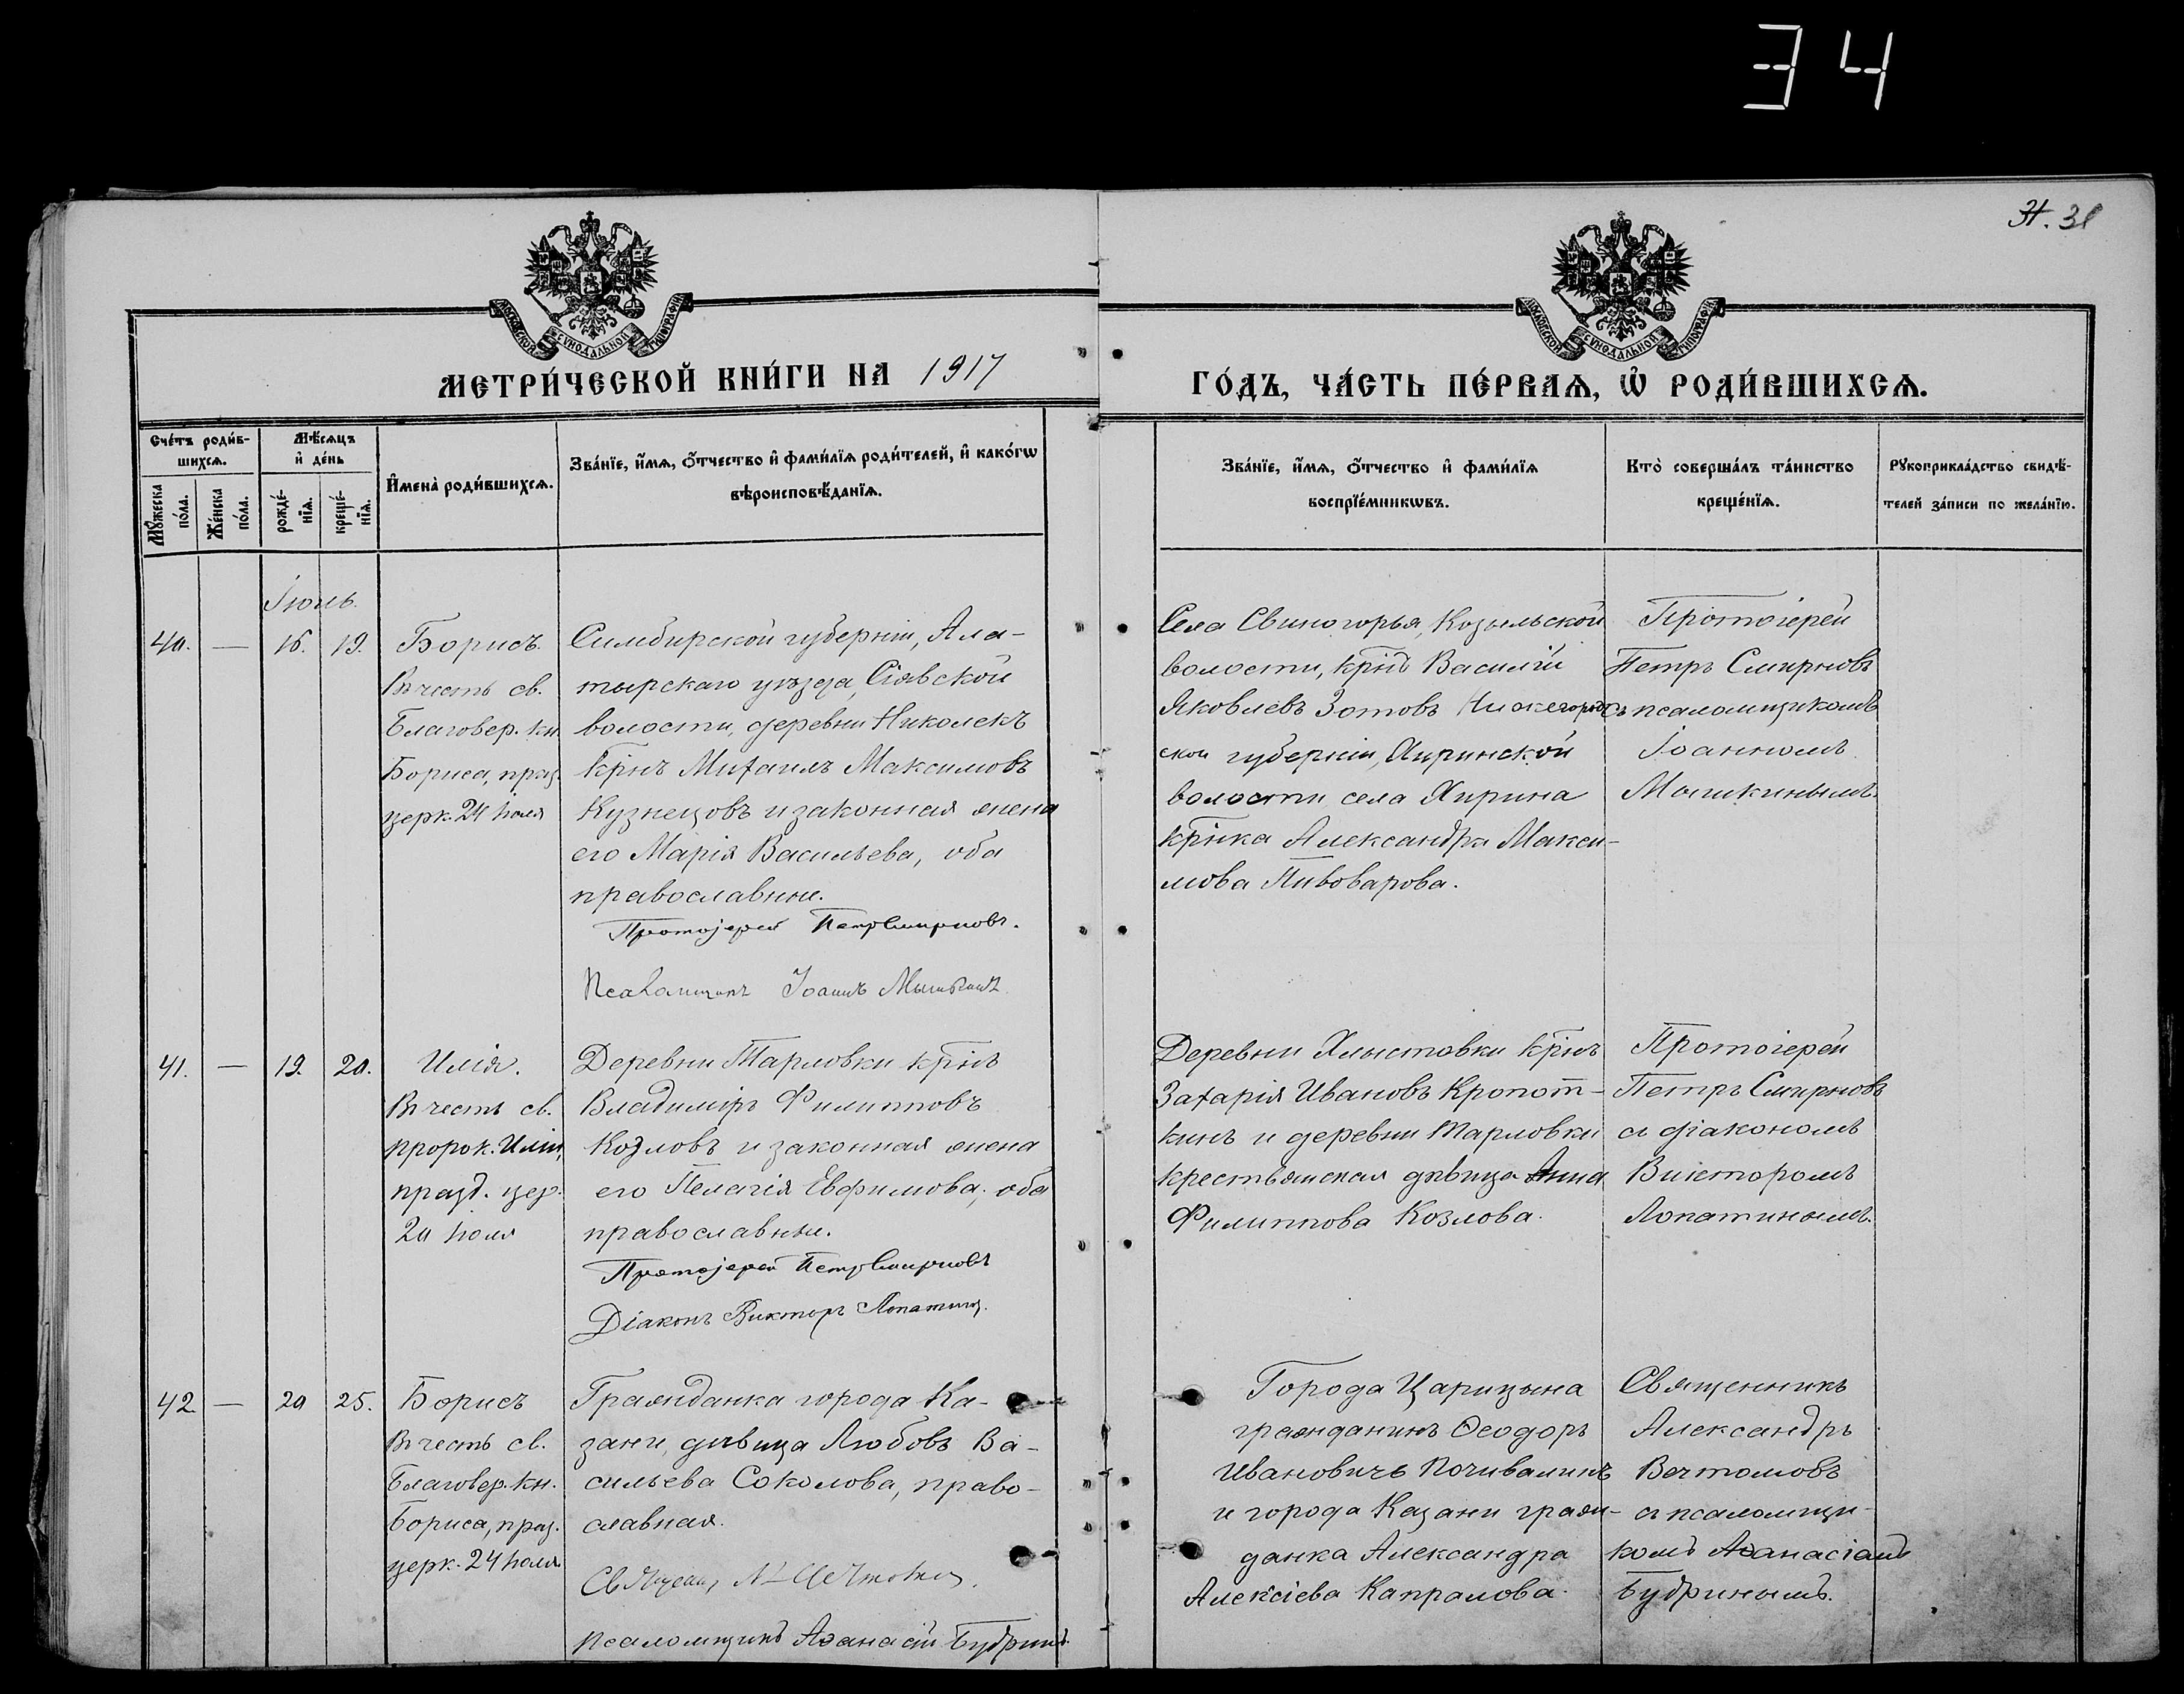 34
Н. 31
МОСКОВСКОЙ СѴНОДАЛЬНОЙ ТИПОГРАФІИ
МОСКОВСКОЙ СѴНОДАЛЬНОЙ ТИПОГРАФІИ
МЕТРИ́ЧЕСКОЙ КНИ́ГИ НА 1917
ГО́ДЪ, ЧА́СТЬ ПЕ́РВАѦ, Ѡ҆ РОДИ́ВШИХСѦ.
Сче́тъ роди́в-
шихсѧ.
Мꙋ́жеска по́ла.
Же́нска по́ла.
Мѣ́сѧцъ
и҆ де́нь
рожде́-
нїѧ.
креще́-
нїѧ.
И҆мена̀ роди́вшихсѧ.
Зва́нїе, и҆́мѧ, ѻ҆́тчество и҆ фами́лїѧ роди́телей, и҆ како́гѡ
вѣроисповѣ́данїѧ.
Зва́нїе, и҆́мѧ, ѻ҆́тчество и҆ фами́лїѧ
воспрїе́мникѡвъ.
Кто̀ соверша́лъ та́инство
креще́нїѧ.
Рꙋкоприкла́дство свидѣ́-
телей за́писи по жела́нїю.
Іюль.
40. — 16. 19.
Борисъ.
Въ честь св.
Благовер. кн.
Бориса, праз.
церк. 24 Іюля
Симбирской губерніи, Ала-
тырскаго уѣзда, Сіявской
волости, деревни Николскъ
крнъ Михаилъ Максимовъ
Кузнецовъ и законная жена
его Марія Васильева, оба
православные.
Протоjерей Петръ Смирновъ.
Псаломщикъ Іоаннъ Мышкинъ
Села Свиногорья, Козыльской
волости, крнъ Василій
Яковлевъ Зотовъ Нижегород-
ской губерніи, Хиринской
волости села Хирина
крнка Александра Макси-
мова Пивоварова.
Протоіерей
Петръ Смирновъ
съ псаломщикомъ
Іоанномъ
Мышкинымъ.
41. — 19. 20.
Илія.
Въ честь св.
пророк. Иліи,
празд. цер.
20 Іюля
Деревни Тарловки крнъ
Владиміръ Филипповъ
Козловъ и законная жена
его Пелагія Евфимова, оба
православные.
Протоjерей Петръ Смирновъ
Діаконъ Викторъ Лопатинъ.
Деревни Хлыстовки крнъ
Захарія Ивановъ Кропот-
кинъ и деревни Тарловки
крестьянская дѣвица Анна
Филиппова Козлова.
Протоіерей
Петръ Смирновъ
съ діакономъ
Викторомъ
Лопатинымъ.
42 — 20 25.
Борисъ
Въ честь св.
Благовер. кн.
Бориса, праз.
церк. 24 Іюля
Гражданка города Ка-
зани, дѣвица Любовь Ва-
сильева Соколова, право-
славная.
псаломщикъ Аѳанасій Будринъ.
Города Царицына
гражданинъ Ѳеодоръ
Ивановичъ Почивалинъ
и города Казани граж-
данка Александра
Алексіева Капралова.
Священникъ
Александръ
Вечтомовъ
съ псаломщи-
комъ Аѳанасіемъ
Будринымъ.